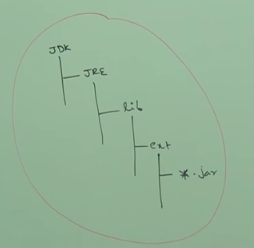 JDK
JRE
lib
ext
*.jar